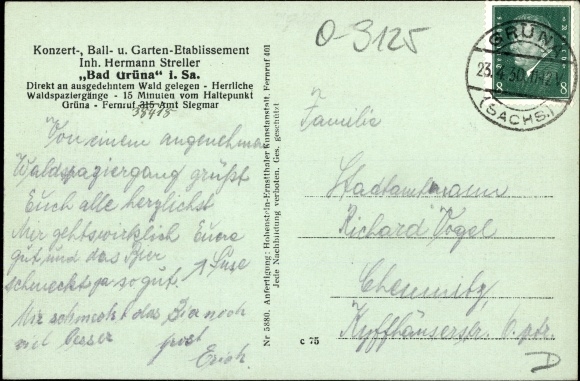 Konzert-, Ball- u. Garten-Etablissement
Inh. Hermann Streller
„Bad Grüna" i. Sa.
Direkt an ausgedehntem Wald gelegen - Herrliche
Waldspaziergänge - 15 Minuten vom Haltepunkt
Grüna - Fernruf 315 Amt Siegmar
38415
Von einem angenehmen
Waldspaziergang grüßt
Euch alle herzlichst
Mir gehts wirklich
gut und das Bier
schmeckt ja so gut. Suse
Mir schmeckt das Bier noch
viel besser prost
Erich.
Nr 5880. Anfertigung: Hohenstein-Ernstthaler Kunstanstalt. Fernruf 401
Jede Nachbildung verboten. Ges. geschützt
c 75
0-3125
GRÜNA
23.4.30
(SACHS.)
8 8
Familie
Stadtamtmann
Richard Vogel
Chemnitz
Kyffhäuserstr.
D